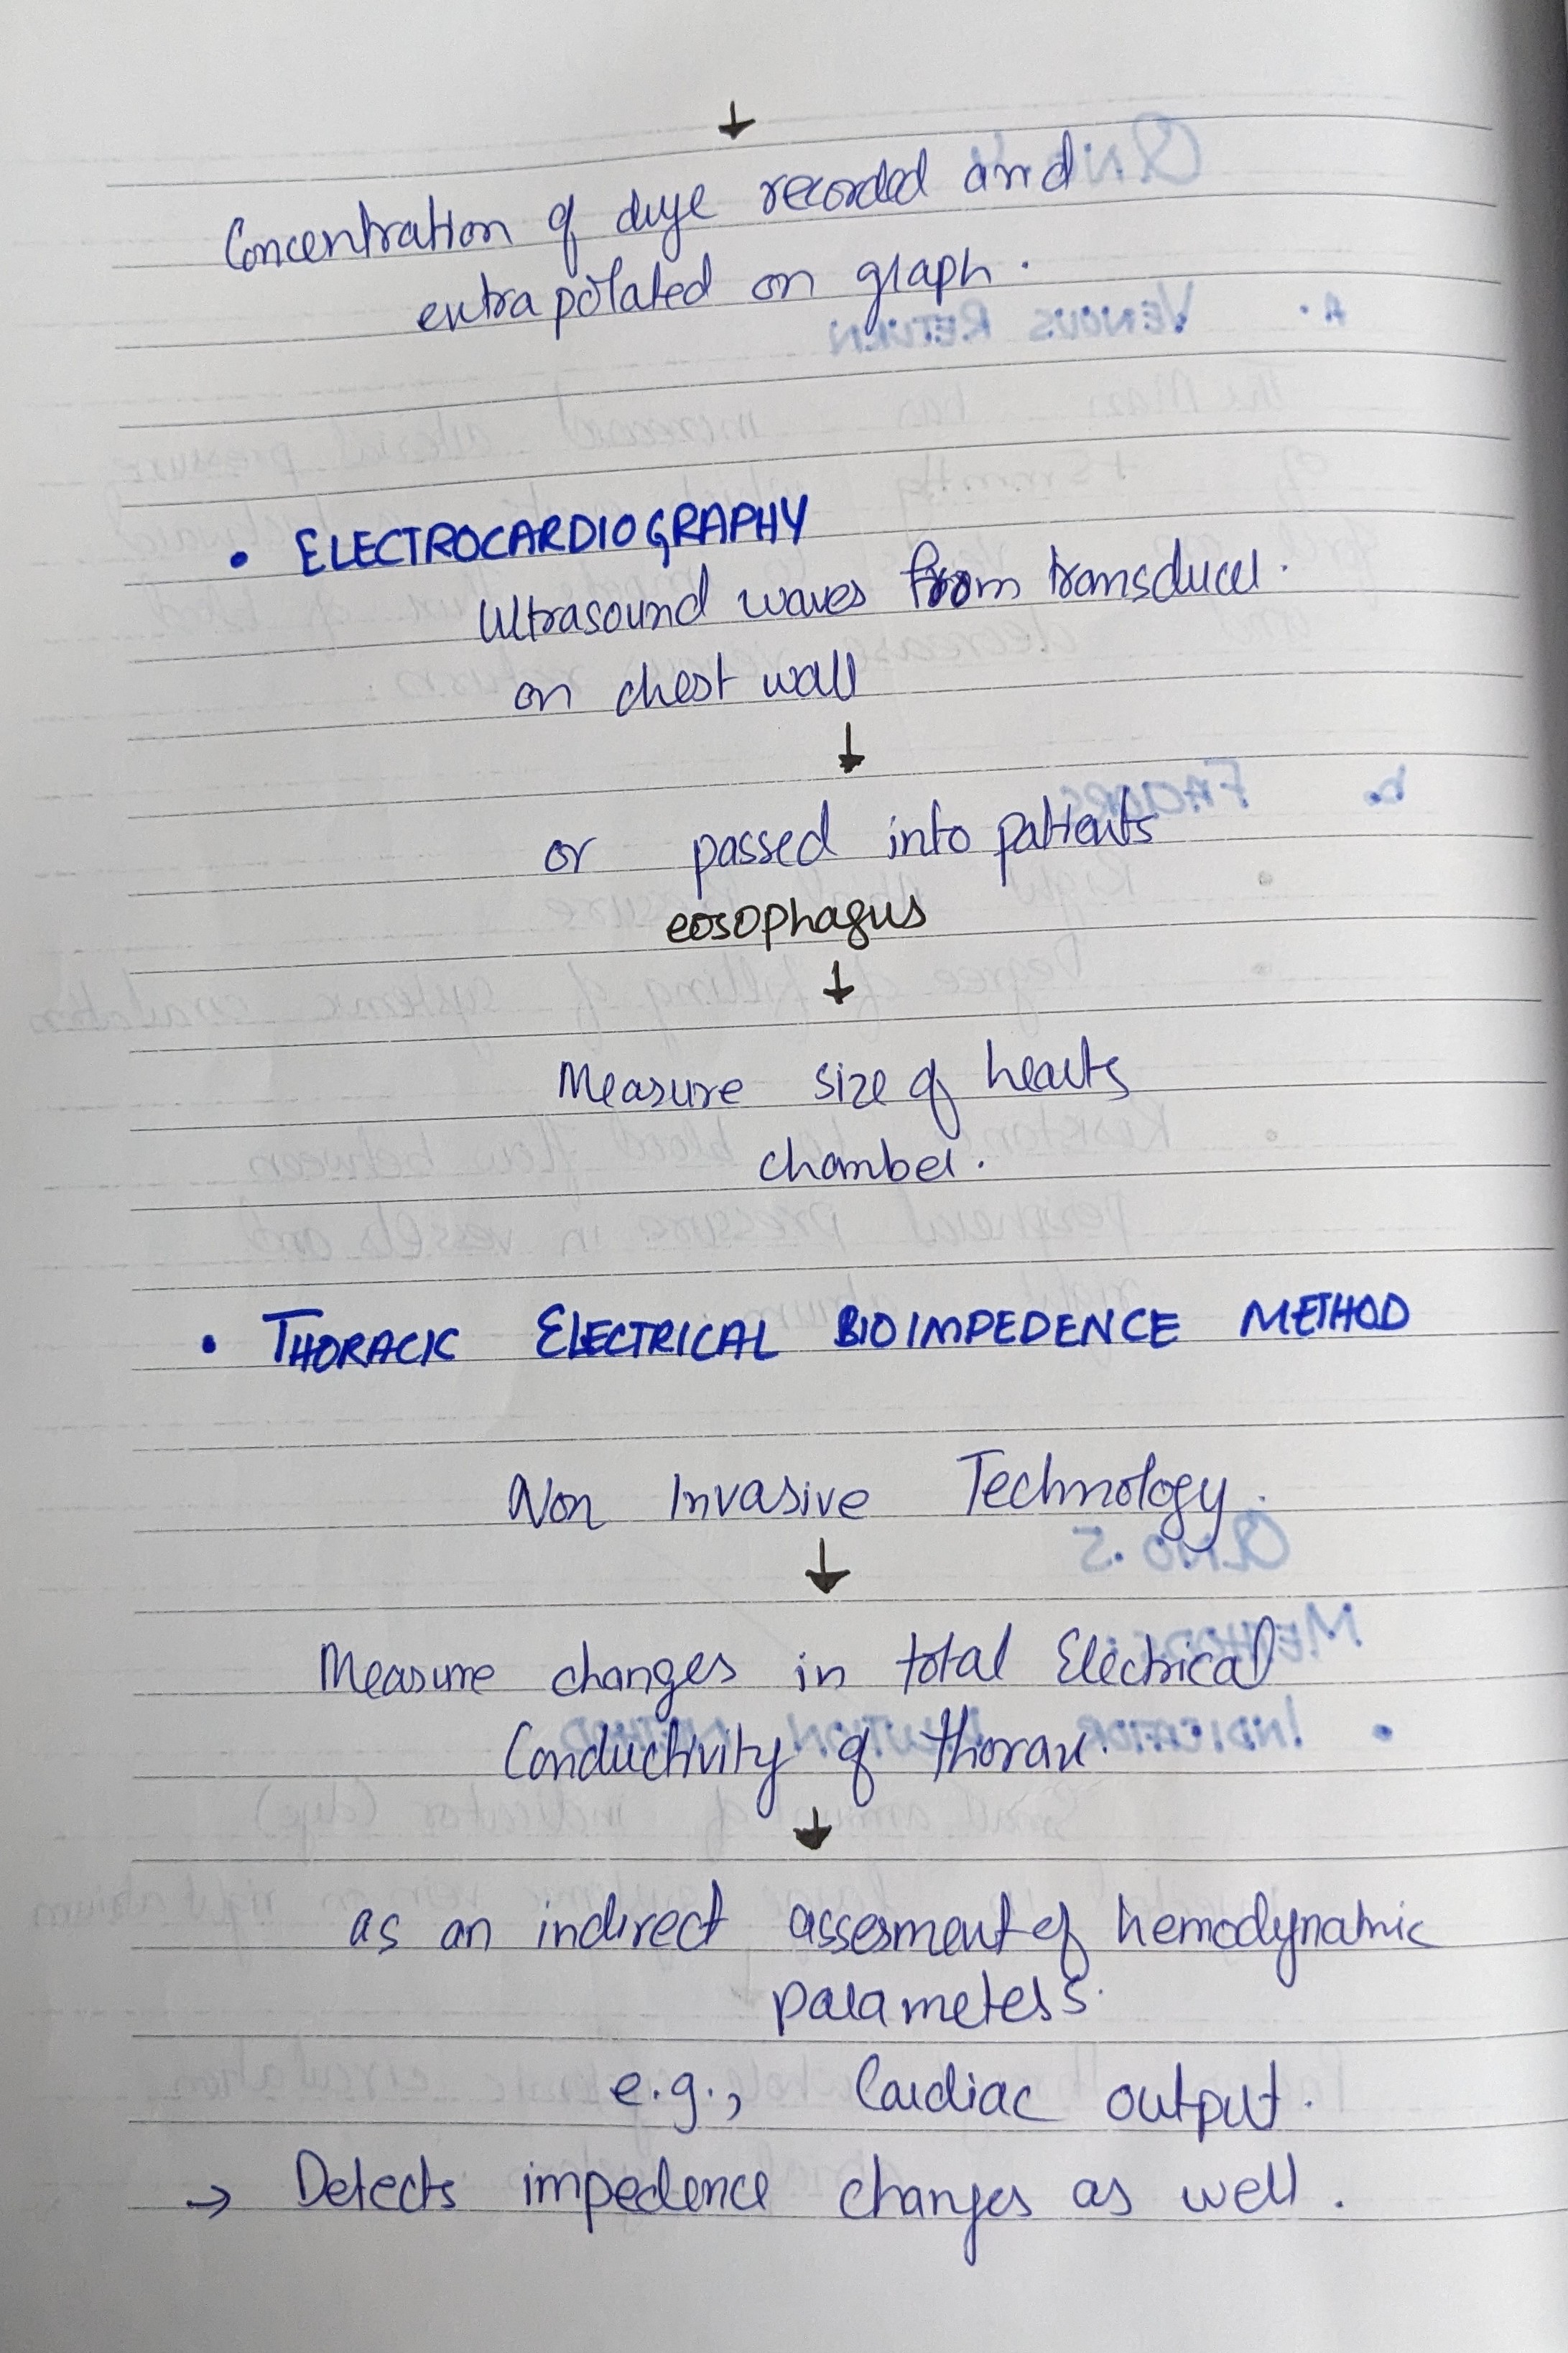 ↓
Concentration of duye recorded and
extrapolated on graph.
• ELECTROCARDIOGRAPHY
Ultrasound waves from transducer.
on chest wall
↓
or passed into patients
eosophagus
↓
Measure size of hearts
chamber.
• THORACIC ELECTRICAL BIOIMPEDENCE METHOD
Non Invasive Technology.
↓
Measure changes in total Electrical
Conductivity of thorax.
↓
as an indirect assesment of hemodynamic
parameters.
e.g., Cardiac output.
→ Detects impedence changes as well.